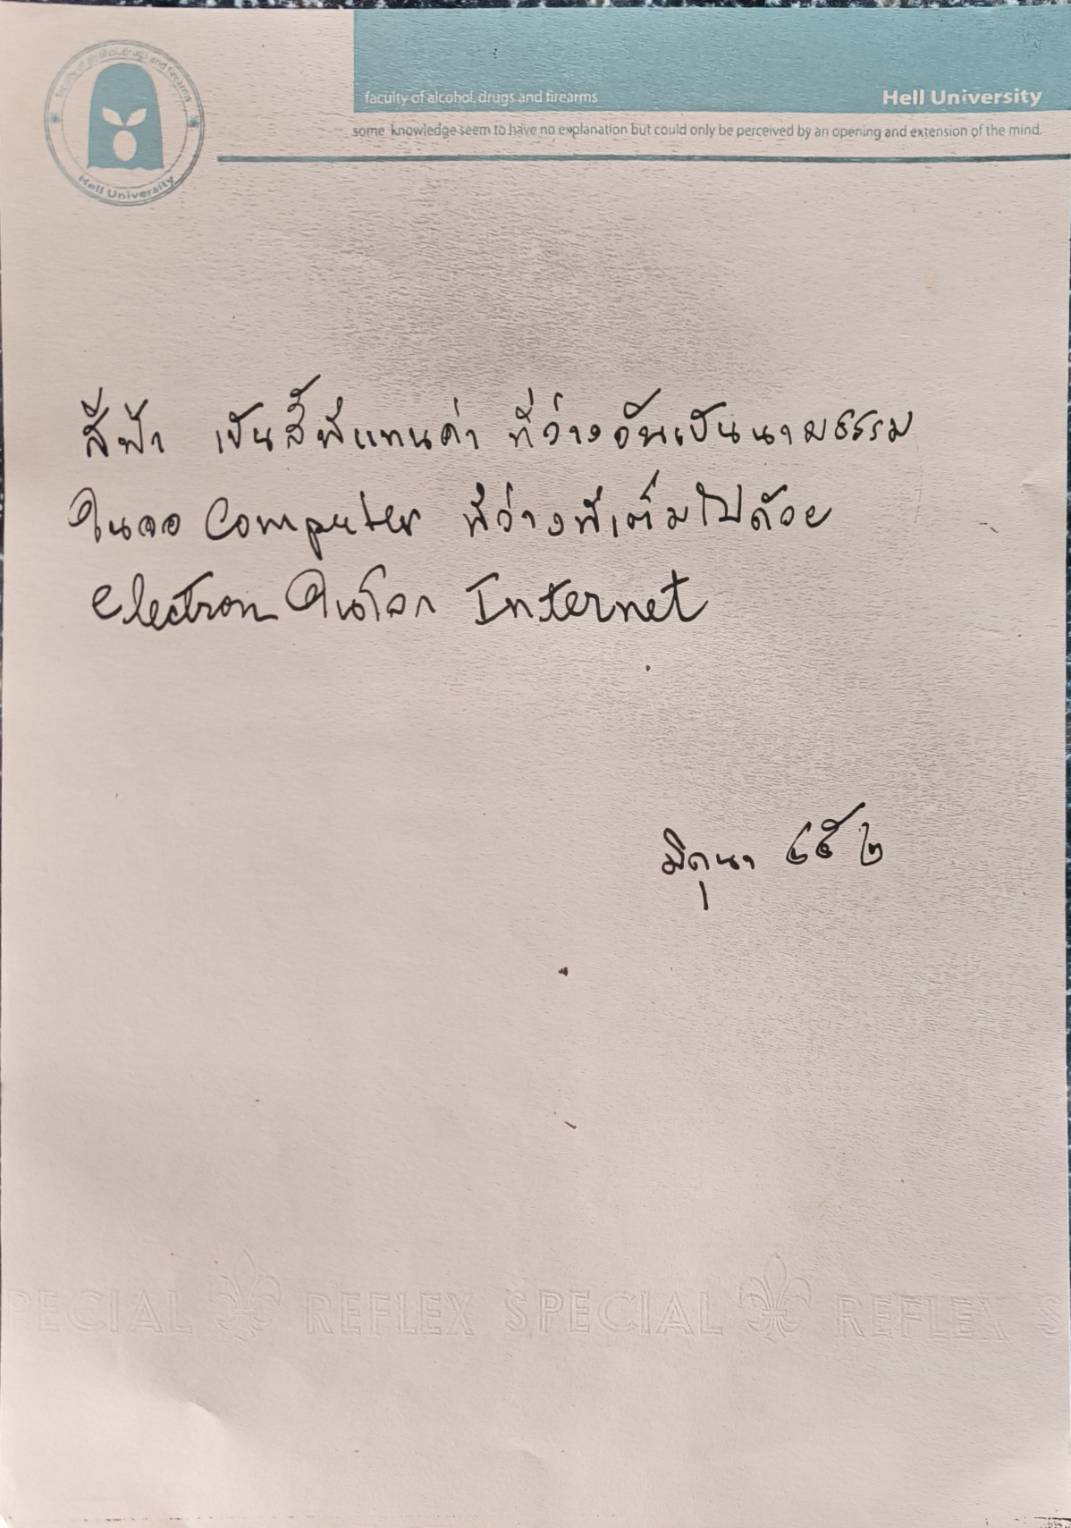 faculty of alcohol, drugs and firearms
Hell University
Hell University
some knowledge seem to have no explanation but could only be perceived by an opening and extension of the mind.
สีฟ้า เป็นสีที่แทนค่า ที่ว่างอันเป็นนามธรรม
ในจอ Computer ที่ว่างที่เต็มไปด้วย
electron ในโลก Internet
มิถุนา
PECIAL REFLEX SPECIAL REFLEX S